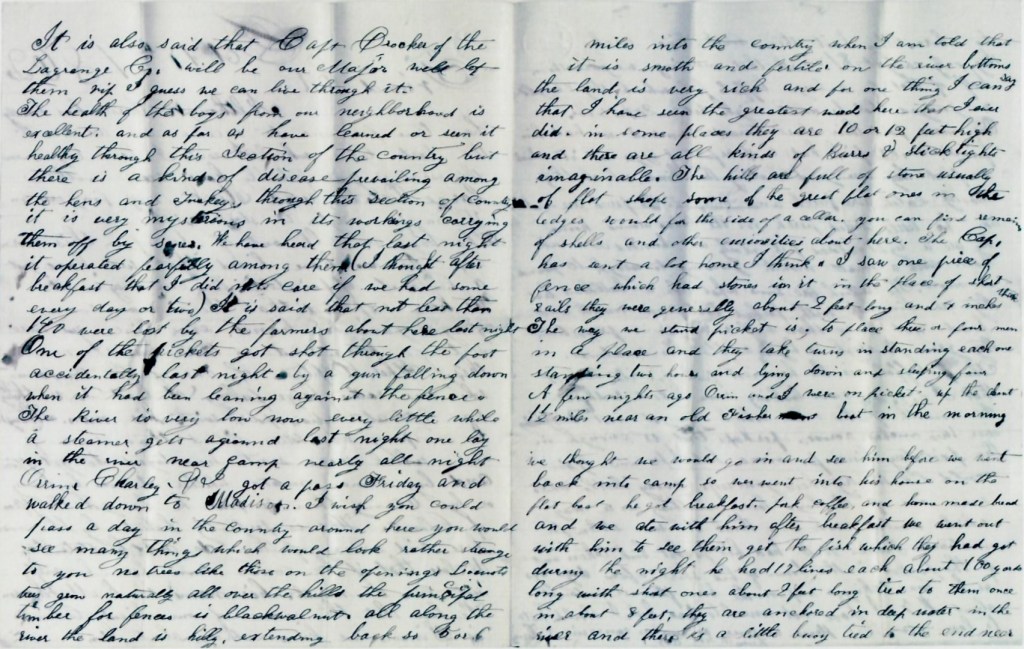 It is also said that Capt Crocker of the
Lagrange Co. will be our Major well let
them rip I guess we can live through it.
The health of the boys from our neighborhood is
excellent. and as far as have learned or seen it
healthy through this Section of the country but
there is a kind of disease prevailing among
the hens and Turkeys through this section of Country
it is very mysterious in its workings Carrying
them off by scores. We have heard that last night
it operated fearfully among them (I thought after
breakfast that I did not care if we had some
every day or two) It is said that not less than
140 were lost by the farmers about here last night
One of the pickets got shot through the foot
accidentally last night by a gun falling down
when it had been leaning against the fence.
The River is very low now every little while
a steamer gets aground last night one lay
in the river near camp nearly all night
Orrin Charley & I got a pass Friday and
walked down to Madison. I wish you could
pass a day in the country around here you would
see many things which would look rather strange
to you no trees like those on the openings Locusts
trees grow naturally all over the hills the principal
timber for fences is blackwalnut all along the
river the land is hilly, extending back 5 or 6
miles into the country when I am told that
it is smoth and fertile on the river bottoms
the land is very rich and for one thing I can say
that, I have seen the greatest weeds here that I ever
did. in some places they are 10 or 12 feet high
and there are all kinds of Burrs & Stick tights
imaginable. The hills are full of stone usually
of flat shape some of the great flat ones in the
ledges would for the side of a cellar. you can find remains
of shells and other curiosities about here. The Cap,
has sent a lot home I think. I saw one piece of
fence which had stones in it in the place of short
rails they were generally about 2 feet long and
The way we stand picket is, to place three or four men
in a place and they take turns in standing each one
standing two hours and lying down and sleeping four
A few nights ago Orrin and I were on picket up the
1½ miles near an old Fishermans but in the morning
we thought we would go in and see him before we went
back into camp so we went into his house on the
flat boat he got breakfast. pork coffee, and home made bread
and we ate with him after breakfast we went out
with him to see them get the fish which they had got
during the night he had 17 lines each about 100 yards
long with short ones about 2 feet long tied to them once
in about 8 feet, they are anchored in deep water in the
river and there is a little buoy tied to the end near